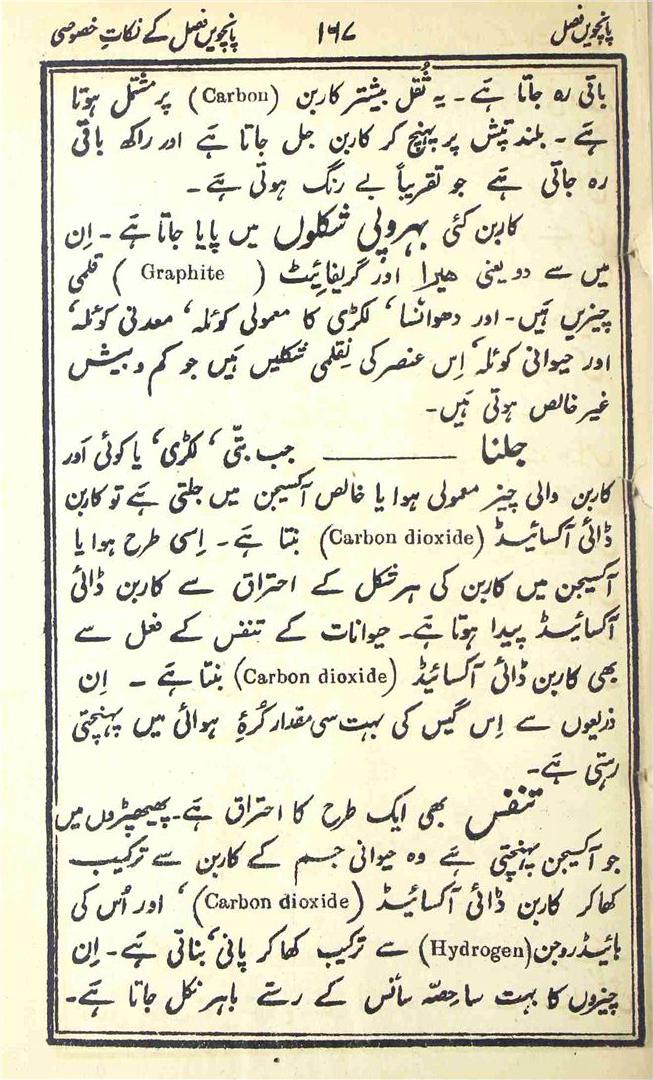 پانچویں فصل ۱۶۷ پانچویں فصل کے نکاتِ خصوصی
باقی رہ جاتا ہے۔ یہ ثُقل بیشتر کاربن (Carbon) پر مشتمل ہوتا
ہے۔ بلند تپش پر پہنچ کر کاربن جل جاتا ہے اور راکھ باقی
رہ جاتی ہے جو تقریباً بے رنگ ہوتی ہے۔
کاربن کئی بہروپی شکلوں میں پایا جاتا ہے۔ اِن
میں سے دو یعنی ہیرا اور گریفائیٹ (Graphite) قلمی
چیزیں ہیں۔ اور دھوانسا، لکڑی کا معمولی کوئلہ، معدنی کوئلہ،
اور حیوانی کوئلہ، اِس عنصر کی نِقلمی شکلیں ہیں جو کم و بیش
غیر خالص ہوتی ہیں۔
جلنا ——— جب بتّی، لکڑی، یا کوئی اَور
کاربن والی چیز معمولی ہوا یا خالص آکسیجن میں جلتی ہے تو کاربن
ڈائی آکسائیڈ (Carbon dioxide) بنتا ہے۔ اِسی طرح ہوا یا
آکسیجن میں کاربن کی ہر شکل کے احتراق سے کاربن ڈائی
آکسائیڈ پیدا ہوتا ہے۔ حیوانات کے تنفس کے فعل سے
بھی کاربن ڈائی آکسائیڈ (Carbon dioxide) بنتا ہے۔ اِن
ذریعوں سے اِس گیس کی بہت سی مقدار کُرۂ ہوائی میں پہنچتی
رہتی ہے۔
تنفس بھی ایک طرح کا احتراق ہے۔ پھیپھڑوں میں
جو آکسیجن پہنچتی ہے وہ حیوانی جسم کے کاربن سے ترکیب
کھا کر کاربن ڈائی آکسائیڈ (Carbon dioxide)، اور اُس کی
ہائیڈروجن (Hydrogen) سے ترکیب کھا کر پانی، بناتی ہے۔ اِن
چیزوں کا بہت سا حصّہ سانس کے رستے باہر نکل جاتا ہے۔